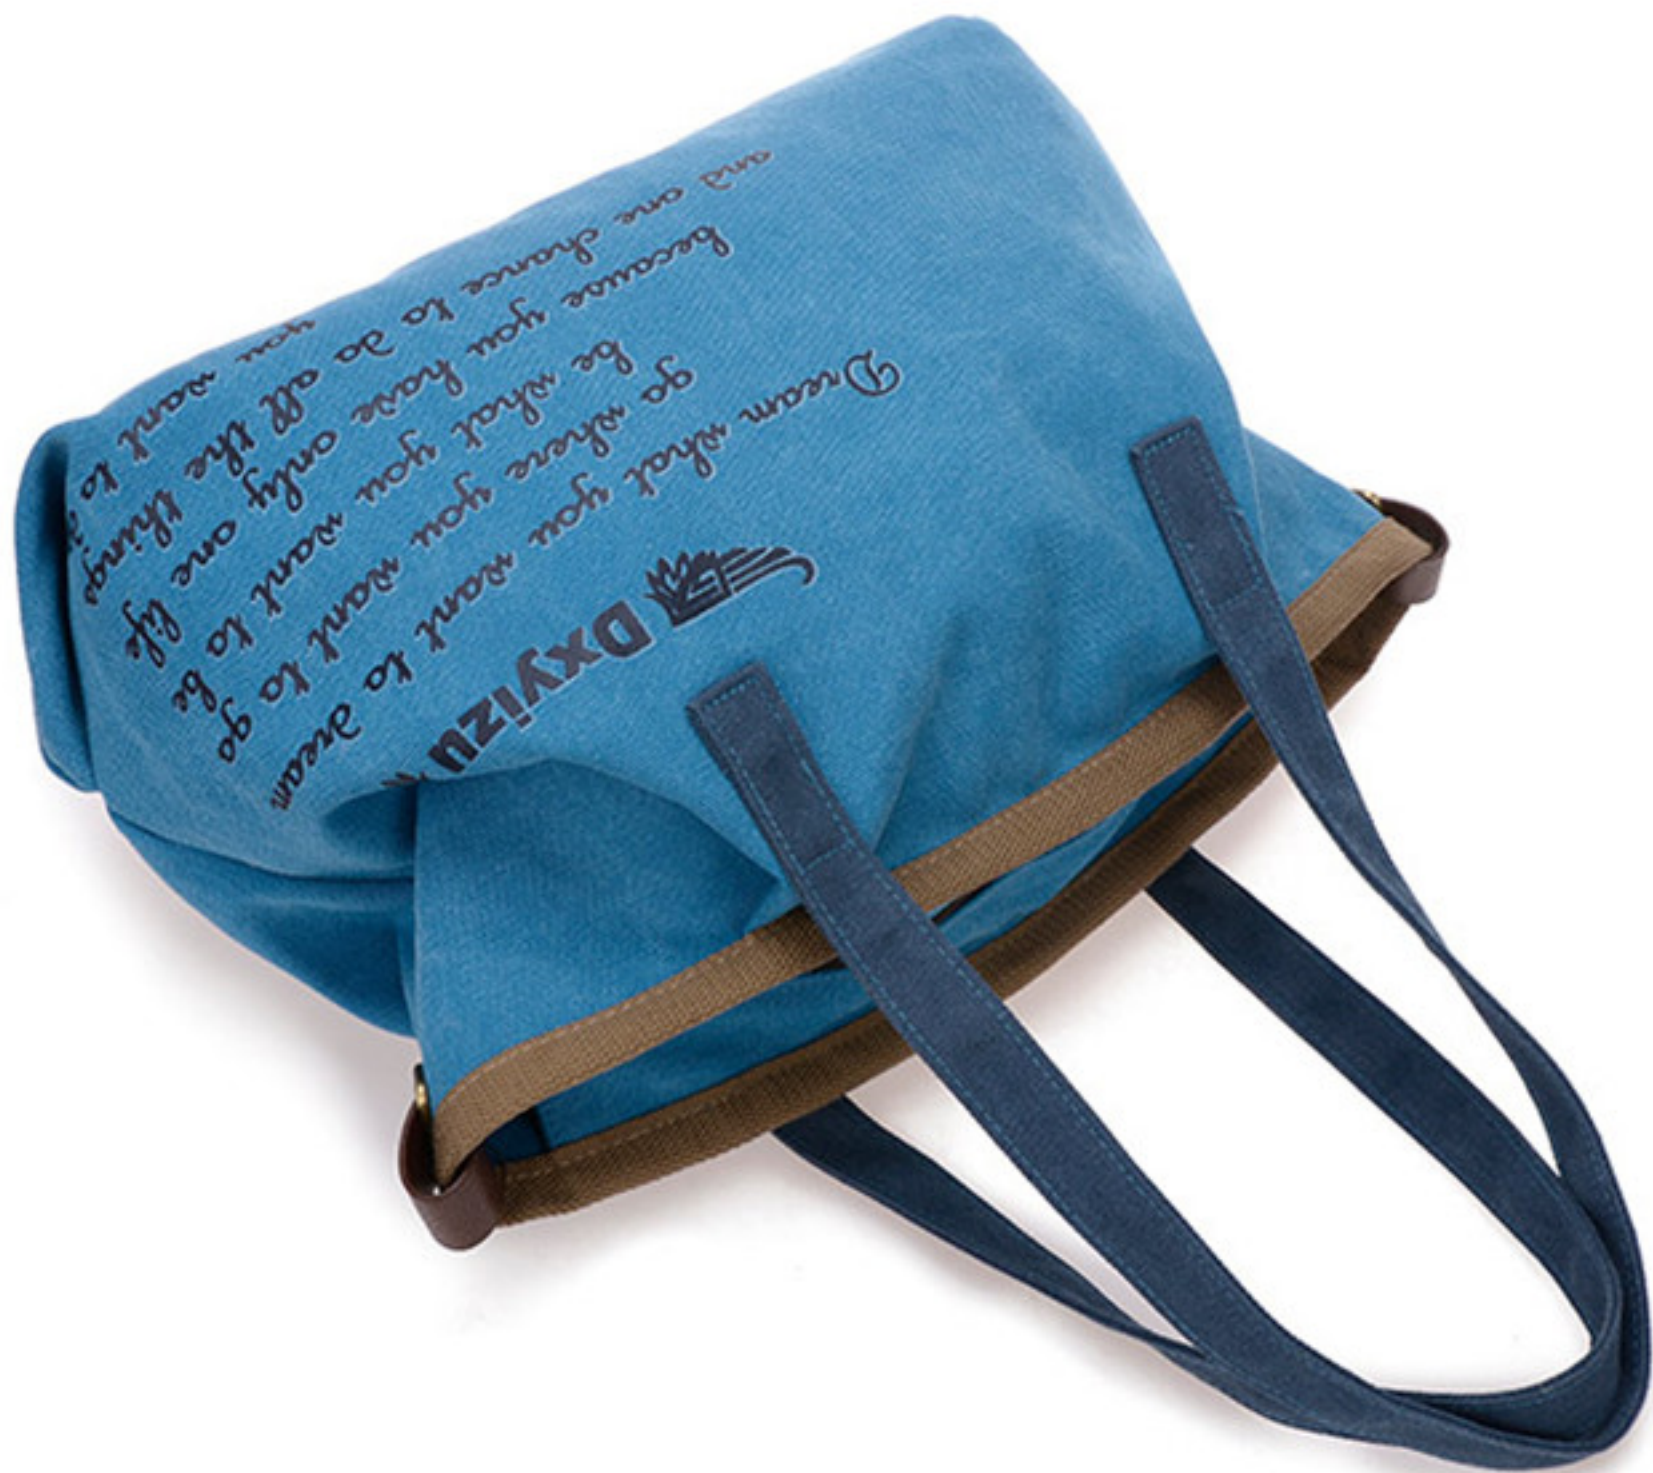 Dxyizu
Dream what you want to dream
go where you want to go
be what you want to be
because you have only one life
and one chance to do all the things
you want to